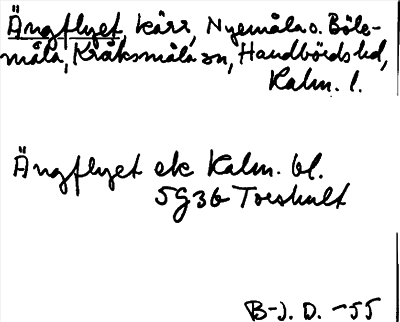 Ängflyet, kärr, Nyemåla o. Böle-
måla, Kråksmåla sn, Handbörds hd,
Kalm. l.
Ängflyet ek Kalm. bl.
5G3b Toeshult
B-J. D. -55